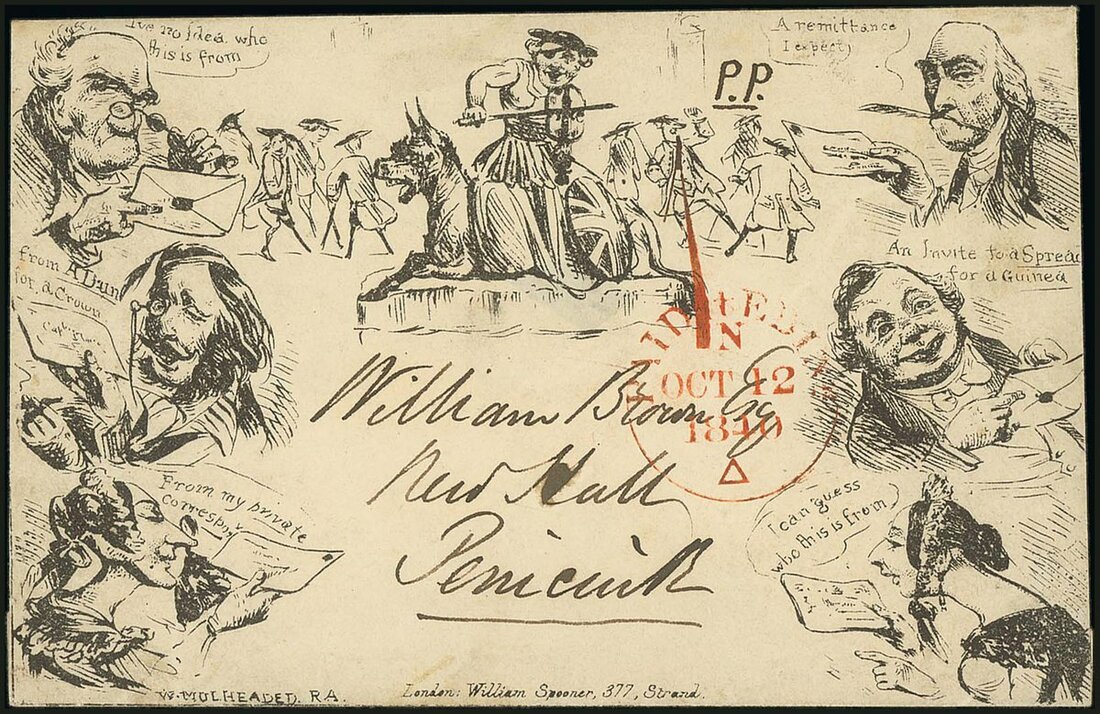 I've no Idea who
this is from
A remittance
I expect
P.P.
from A Dun
for a Crown
An Invite to a Spread
for a Guinea
PAID
N
OCT 12
1840
William Brown Esq
New Hall
Penicuik
From my private
Correspn
I can guess
who this is from
W. MULHEADED. R.A.
London: William Spooner, 377, Strand.